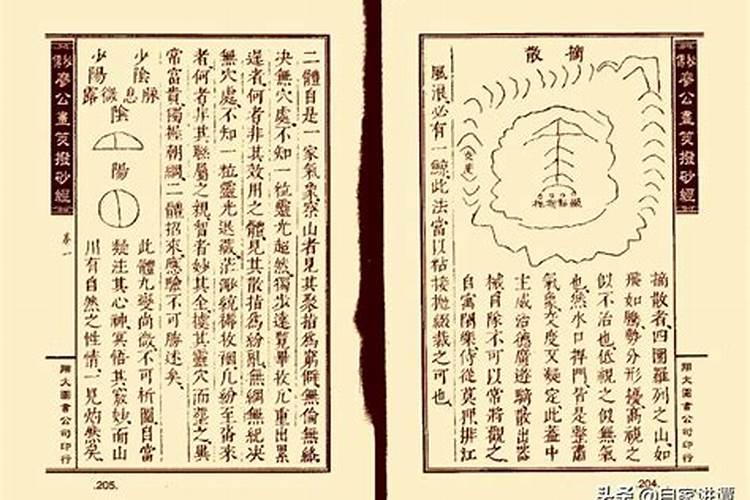 秘廖公畫筴撥砂經
翔大圖書公司印行
204.
摘散
摘散者四圍羅列之山如
飛如騰勢分形擾高視之
似不治也低視之似無氣
也然水口捍門皆是聲肅
氣象文度又疑定此蓋中
主威治德廣遊騎散出器
械自隊不可以常將觀之
自寓閫樂侍從莫裡排江
風浪必有一鯨此法當以粘接拋綴裁之可也
二體自是一家氣象葬山者見其聚指爲窮無倫無緒
決無穴處不知一位靈光超然獨步遠覽畢收凡重出累
逞者何者非其效用之體見其散指爲紛亂無綱無紀決
無穴處不知一粒靈光退藏茫渺統攝牧凡紛至沓來
者何者非其聯屬之親智者妙其全擴其靈穴而葬之其
常富貴獨操朝綱二體招來應驗不可勝述矣
少陰
少陽
脉息微露
陰
陽
此體九變尚微不可析圖自當
疑注其心神冥悟其窾妙而山
川有自然之性情一見灼然矣
秘廖公畫筴撥砂經
卷一
翔大圖書公司印行
.205.
头条@自家讲谭